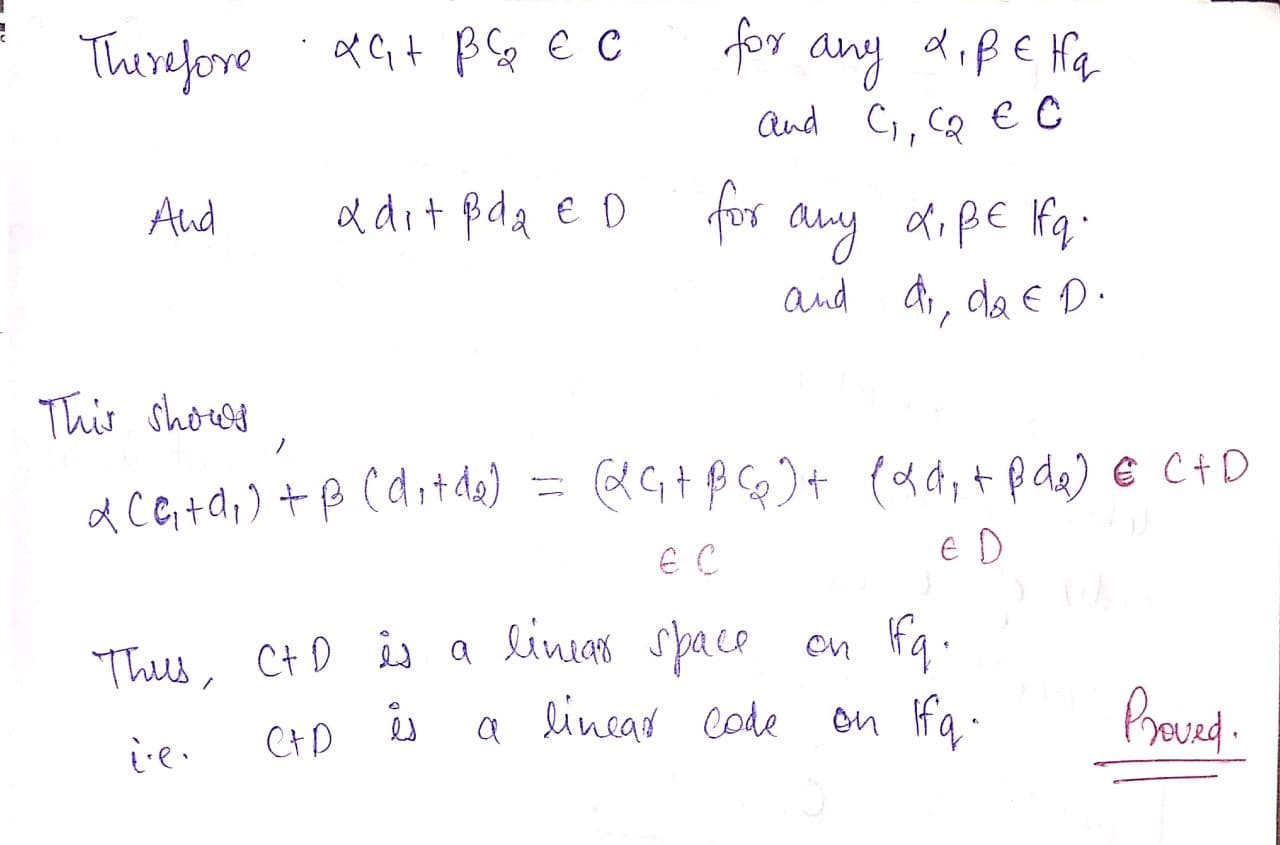 Therefore αc₁ + βc₂ ∈ C for any α, β ∈ 𝔽q
and c₁, c₂ ∈ C
And αd₁ + βd₂ ∈ D for any α, β ∈ 𝔽q.
and d₁, d₂ ∈ D.
This shows,
α(c₁+d₁) + β(d₁+d₂) = (αc₁ + βc₂) + (αd₁ + βd₂) ∈ C+D
∈ C ∈ D
Thus, C+D is a linear space on 𝔽q.
i.e. C+D is a linear code on 𝔽q.
Proved.